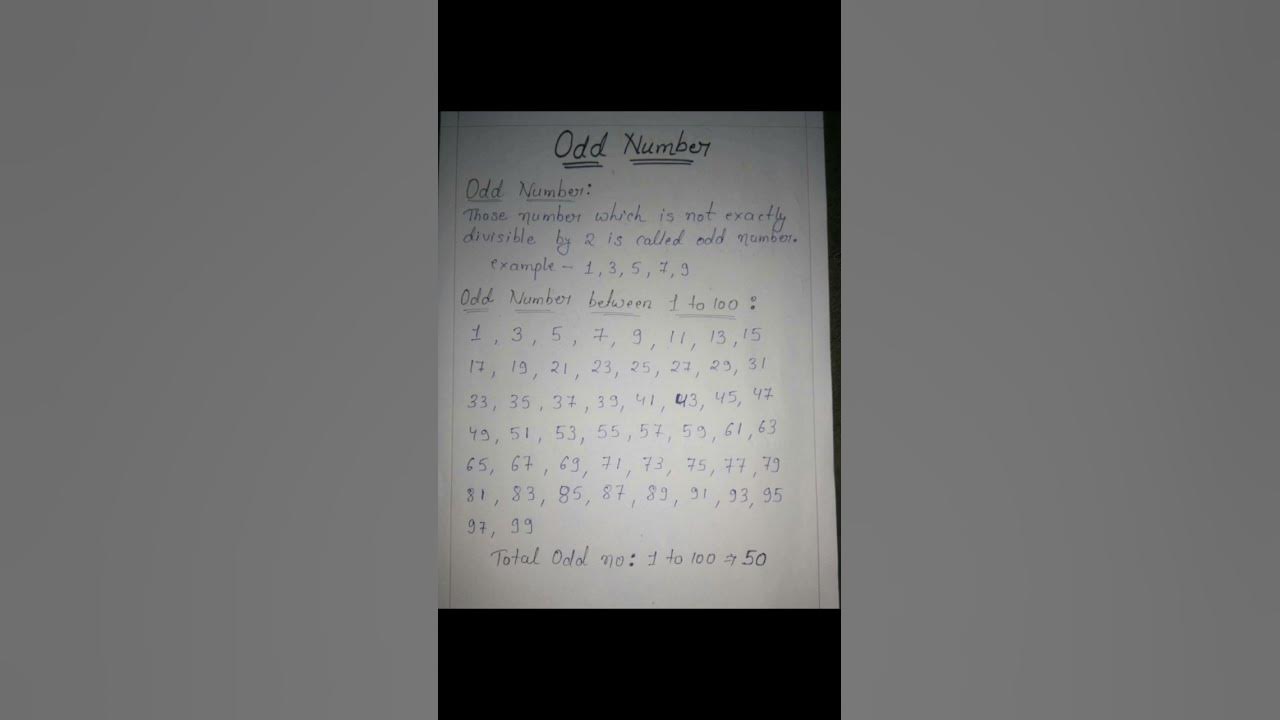 Odd Number
Odd Number:
Those number which is not exactly
divisible by 2 is called odd number.
example - 1, 3, 5, 7, 9
Odd Number between 1 to 100 :
1, 3, 5, 7, 9, 11, 13, 15
17, 19, 21, 23, 25, 27, 29, 31
33, 35, 37, 39, 41, 43, 45, 47
49, 51, 53, 55, 57, 59, 61, 63
65, 67, 69, 71, 73, 75, 77, 79
81, 83, 85, 87, 89, 91, 93, 95
97, 99
Total Odd no: 1 to 100 ⇒ 50